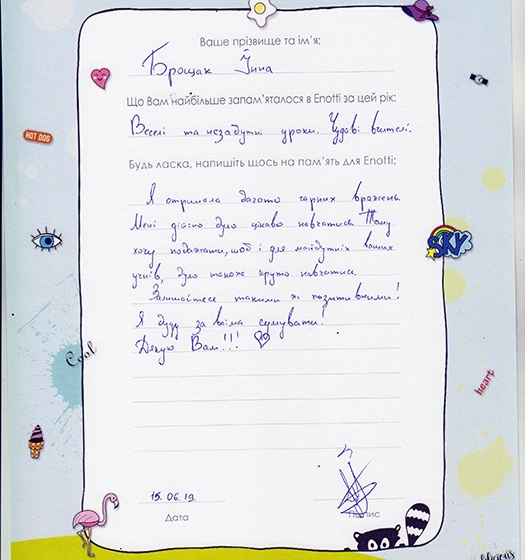 Ваше прізвище та ім'я:
Брощак Інна
Що Вам найбільше запам'яталося в Enotti за цей рік:
Веселі та незабутні уроки. Чудові вчителі.
Будь ласка, напишіть щось на пам'ять для Enotti:
Я отримала багато гарних вражень.
Мені дійсно було цікаво навчатись. Тому
хочу побажати, щоб і для майбутніх ваших
учнів, було також круто навчатися.
Залишайтеся такими ж позитивними!
Я буду за всіма сумувати!
Дякую Вам!!!
HOT DOG
SKY
Cool
heart
15.06.19.
Дата
Підпис